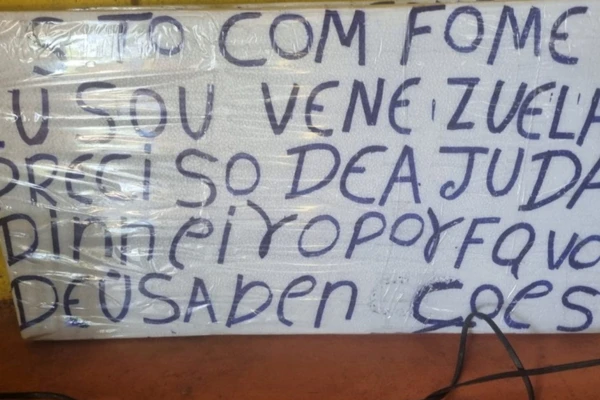 S TO COM FOME
EU SOU VENEZUELA
PRECISO DE AJUDA
Dinheiro por FAVO
DEUS ABENÇOES